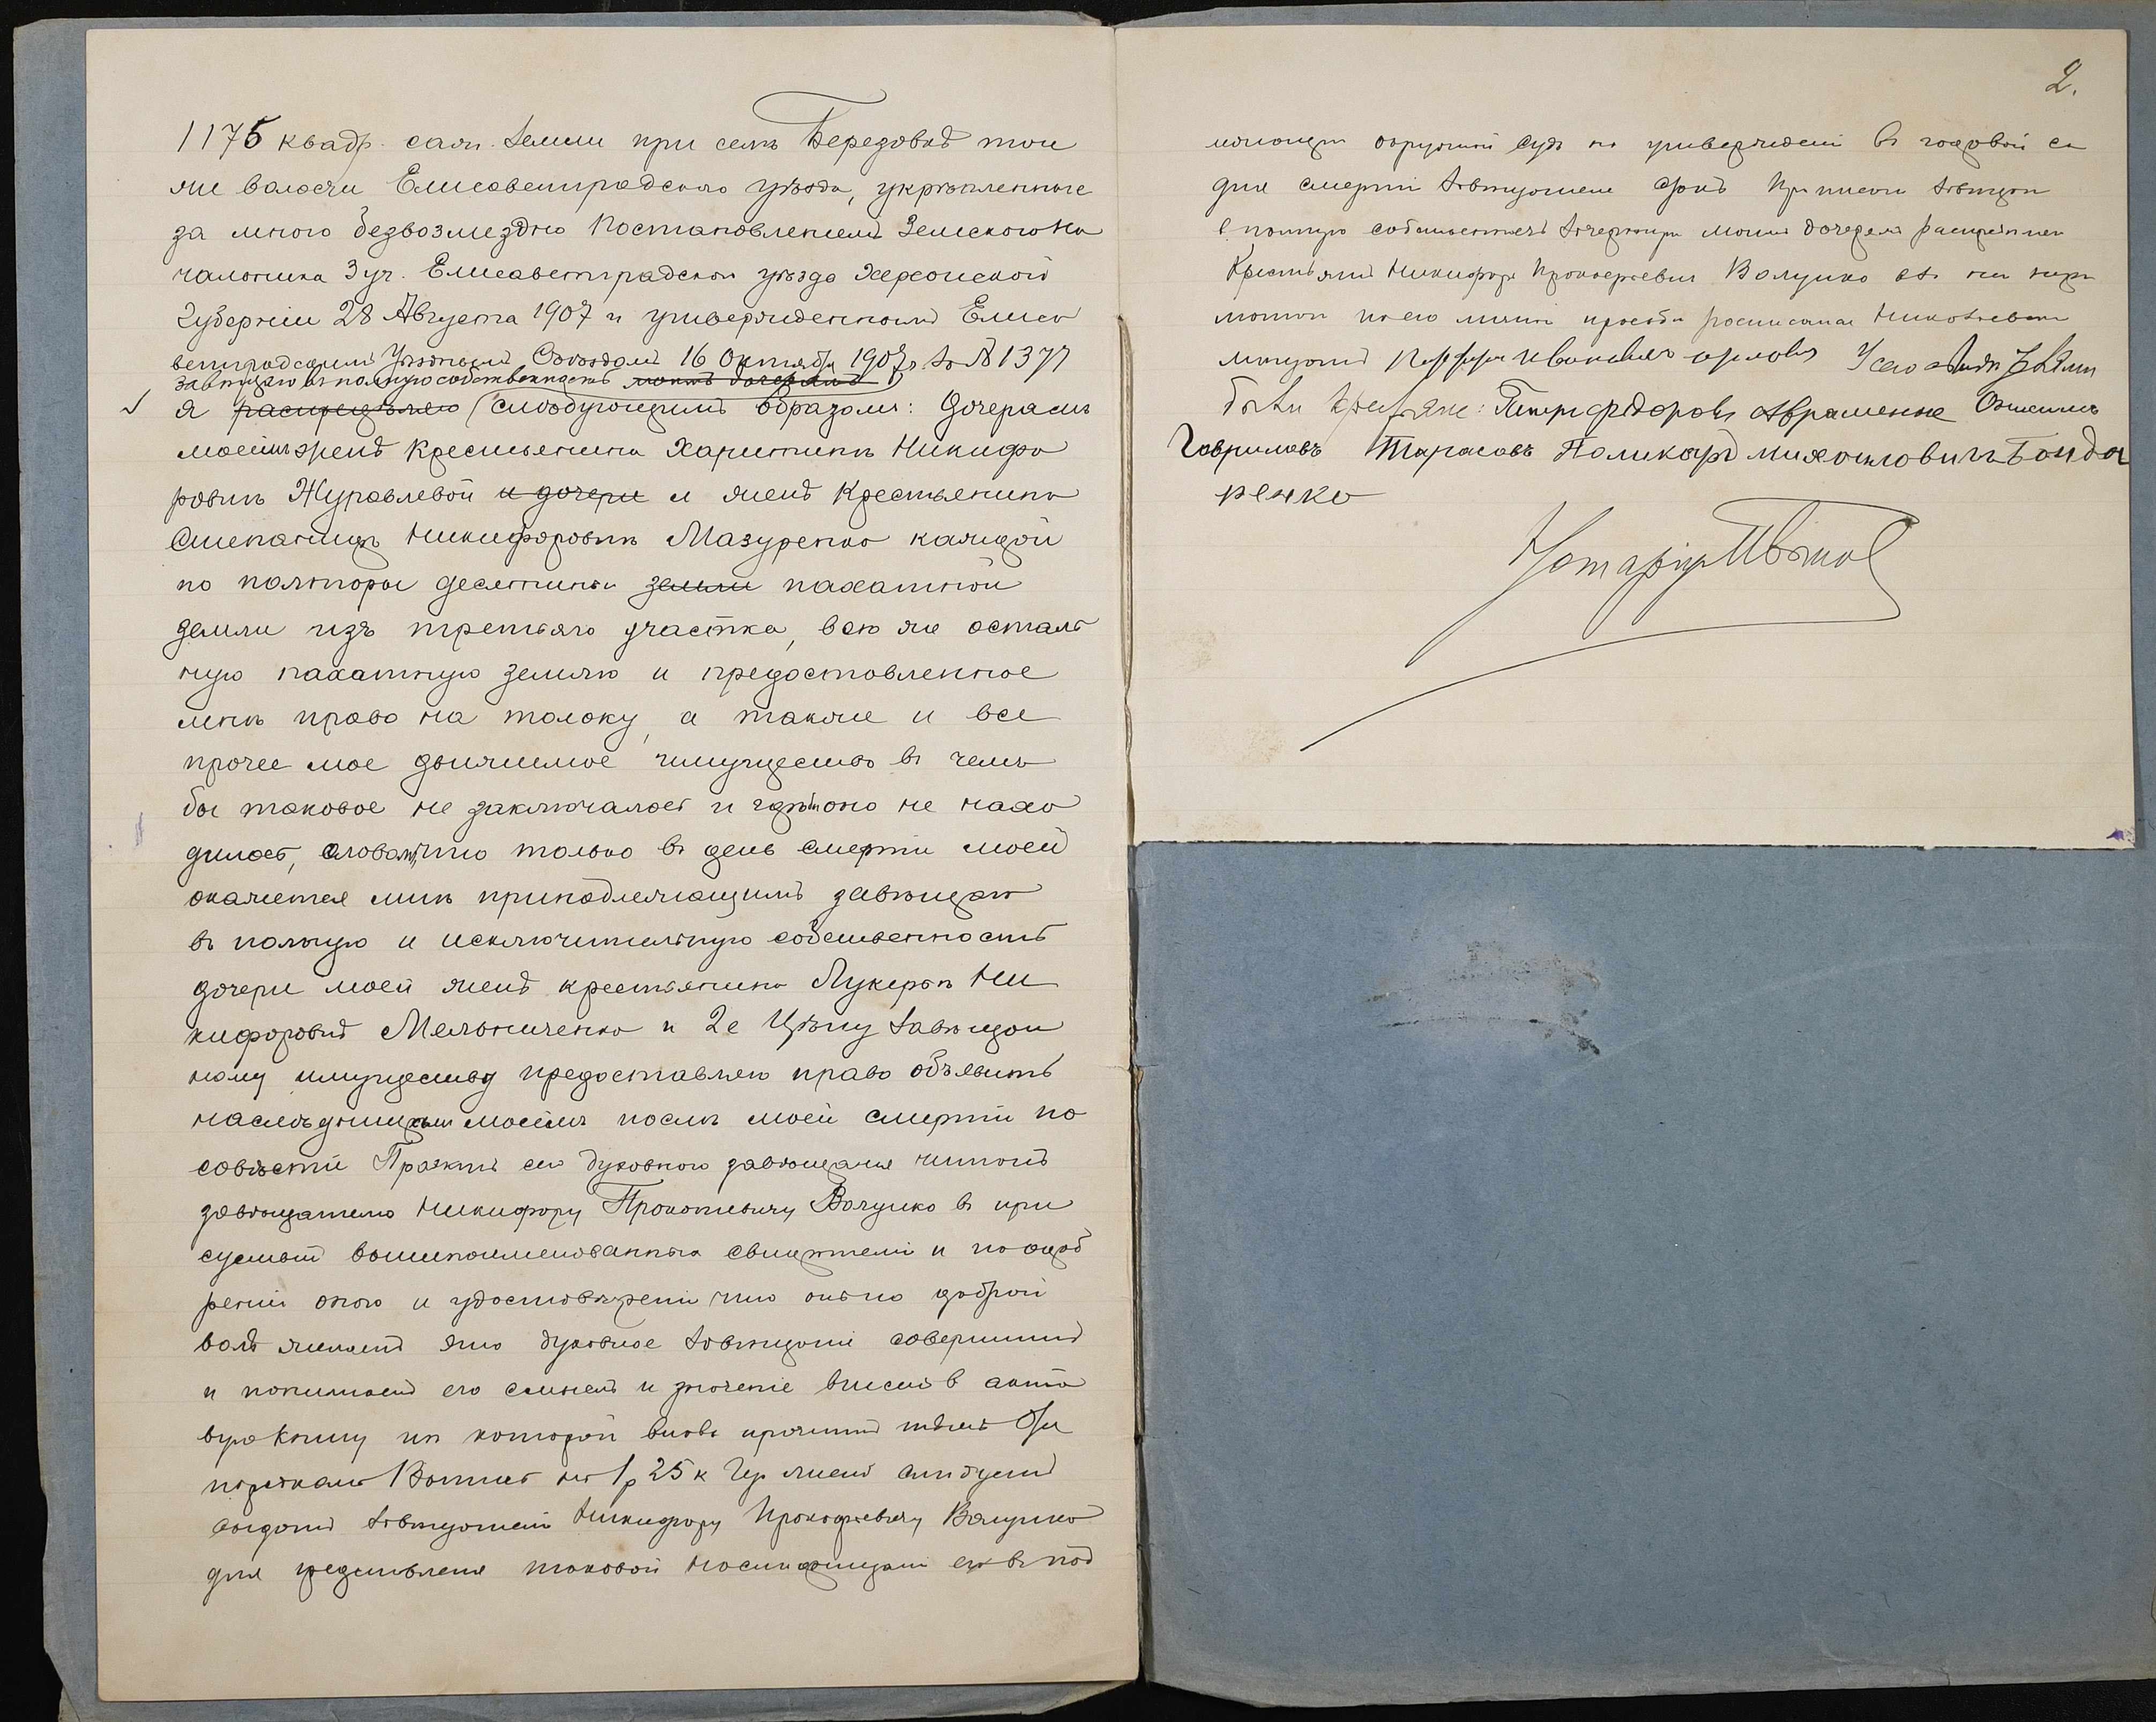 1175 квадр. саж. земли при селѣ Бередовкѣ той
же волости Елисаветградскаго уѣзда, укрѣпленные
за мною безвозмездно Постановленіемъ Земскаго На
чальника 3 уч. Елисаветградскаго уѣзда Херсонской
Губерніи 28 Августа 1907 и утвержденнымъ Елиса
ветградскимъ Уѣзднымъ Съѣздомъ 16 Октября 1907 г. за № 1377
завѣщаю въ полную собственность моимъ дочерямъ
Я распредѣляю слѣдующимъ образомъ: Дочерямъ
моимъ женѣ Крестьянина Харитинѣ Никифо
ровнѣ Журавлевой и дочери и женѣ Крестьянина
Степанидѣ Никифоровнѣ Мазуренко каждой
по полторы десятины земли пахатной
земли изъ третьяго участка, всю же осталь
ную пахатную землю и предоставленное
мнѣ право на толоку, а также и все
прочее мое движимое имущество въ чемъ
бы таковое не заключалось и гдѣ оно не нахо
дилось, словомъ, что только въ день смерти моей
окажется мнѣ принадлежащимъ завѣщаю
въ полную и исключительную собственность
дочери моей женѣ крестьянина Лукерьѣ Ни
кифоровнѣ Мельниченко и 2е Цѣну завѣщан
ному имуществу предоставляю право объявить
наслѣдницамъ моимъ послѣ моей смерти по
совѣсти Проэктъ сего духовнаго завѣщанія читанъ
завѣщателю Никифору Прокопьевичу Волушко въ при
сутствіи вышепоименованныхъ свидѣтелей и по одоб
реніи онаго и удостовѣреніи что онъ по доброй
волѣ желаетъ это духовное завѣщаніе совершить
и понимаетъ его смыслъ и значеніе внесенъ въ акто
вую книгу из которой вновь прочитанъ тѣмъ же
порядкомъ Выпись на 1 р 25 к гер листѣ слѣдуетъ
выдать завѣщателю Никифору Прокофьевичу Волушко
для представленія таковой наслѣдницами его въ под
2.
лежащій окружный судъ къ утвержденію въ годовой со
дня смерти завѣщателя срокъ При писан завѣщан
въ полную собственность зачеркнуты моимъ дочерямъ распредѣляю
Крестьянинъ Никифоръ Прокофьевичъ Волушко а за негра
мотнаго по его личной просьбѣ росписался Николаевск
мѣщанинъ Ивановичъ Орловъ У сего свидѣтелями
были крестьяне: Петръ Фёдоровъ Авраменко Онисимъ
Гавриловъ Тарасовъ Поликарпъ Михаиловичъ Бонда
ренко
Нотаріусъ